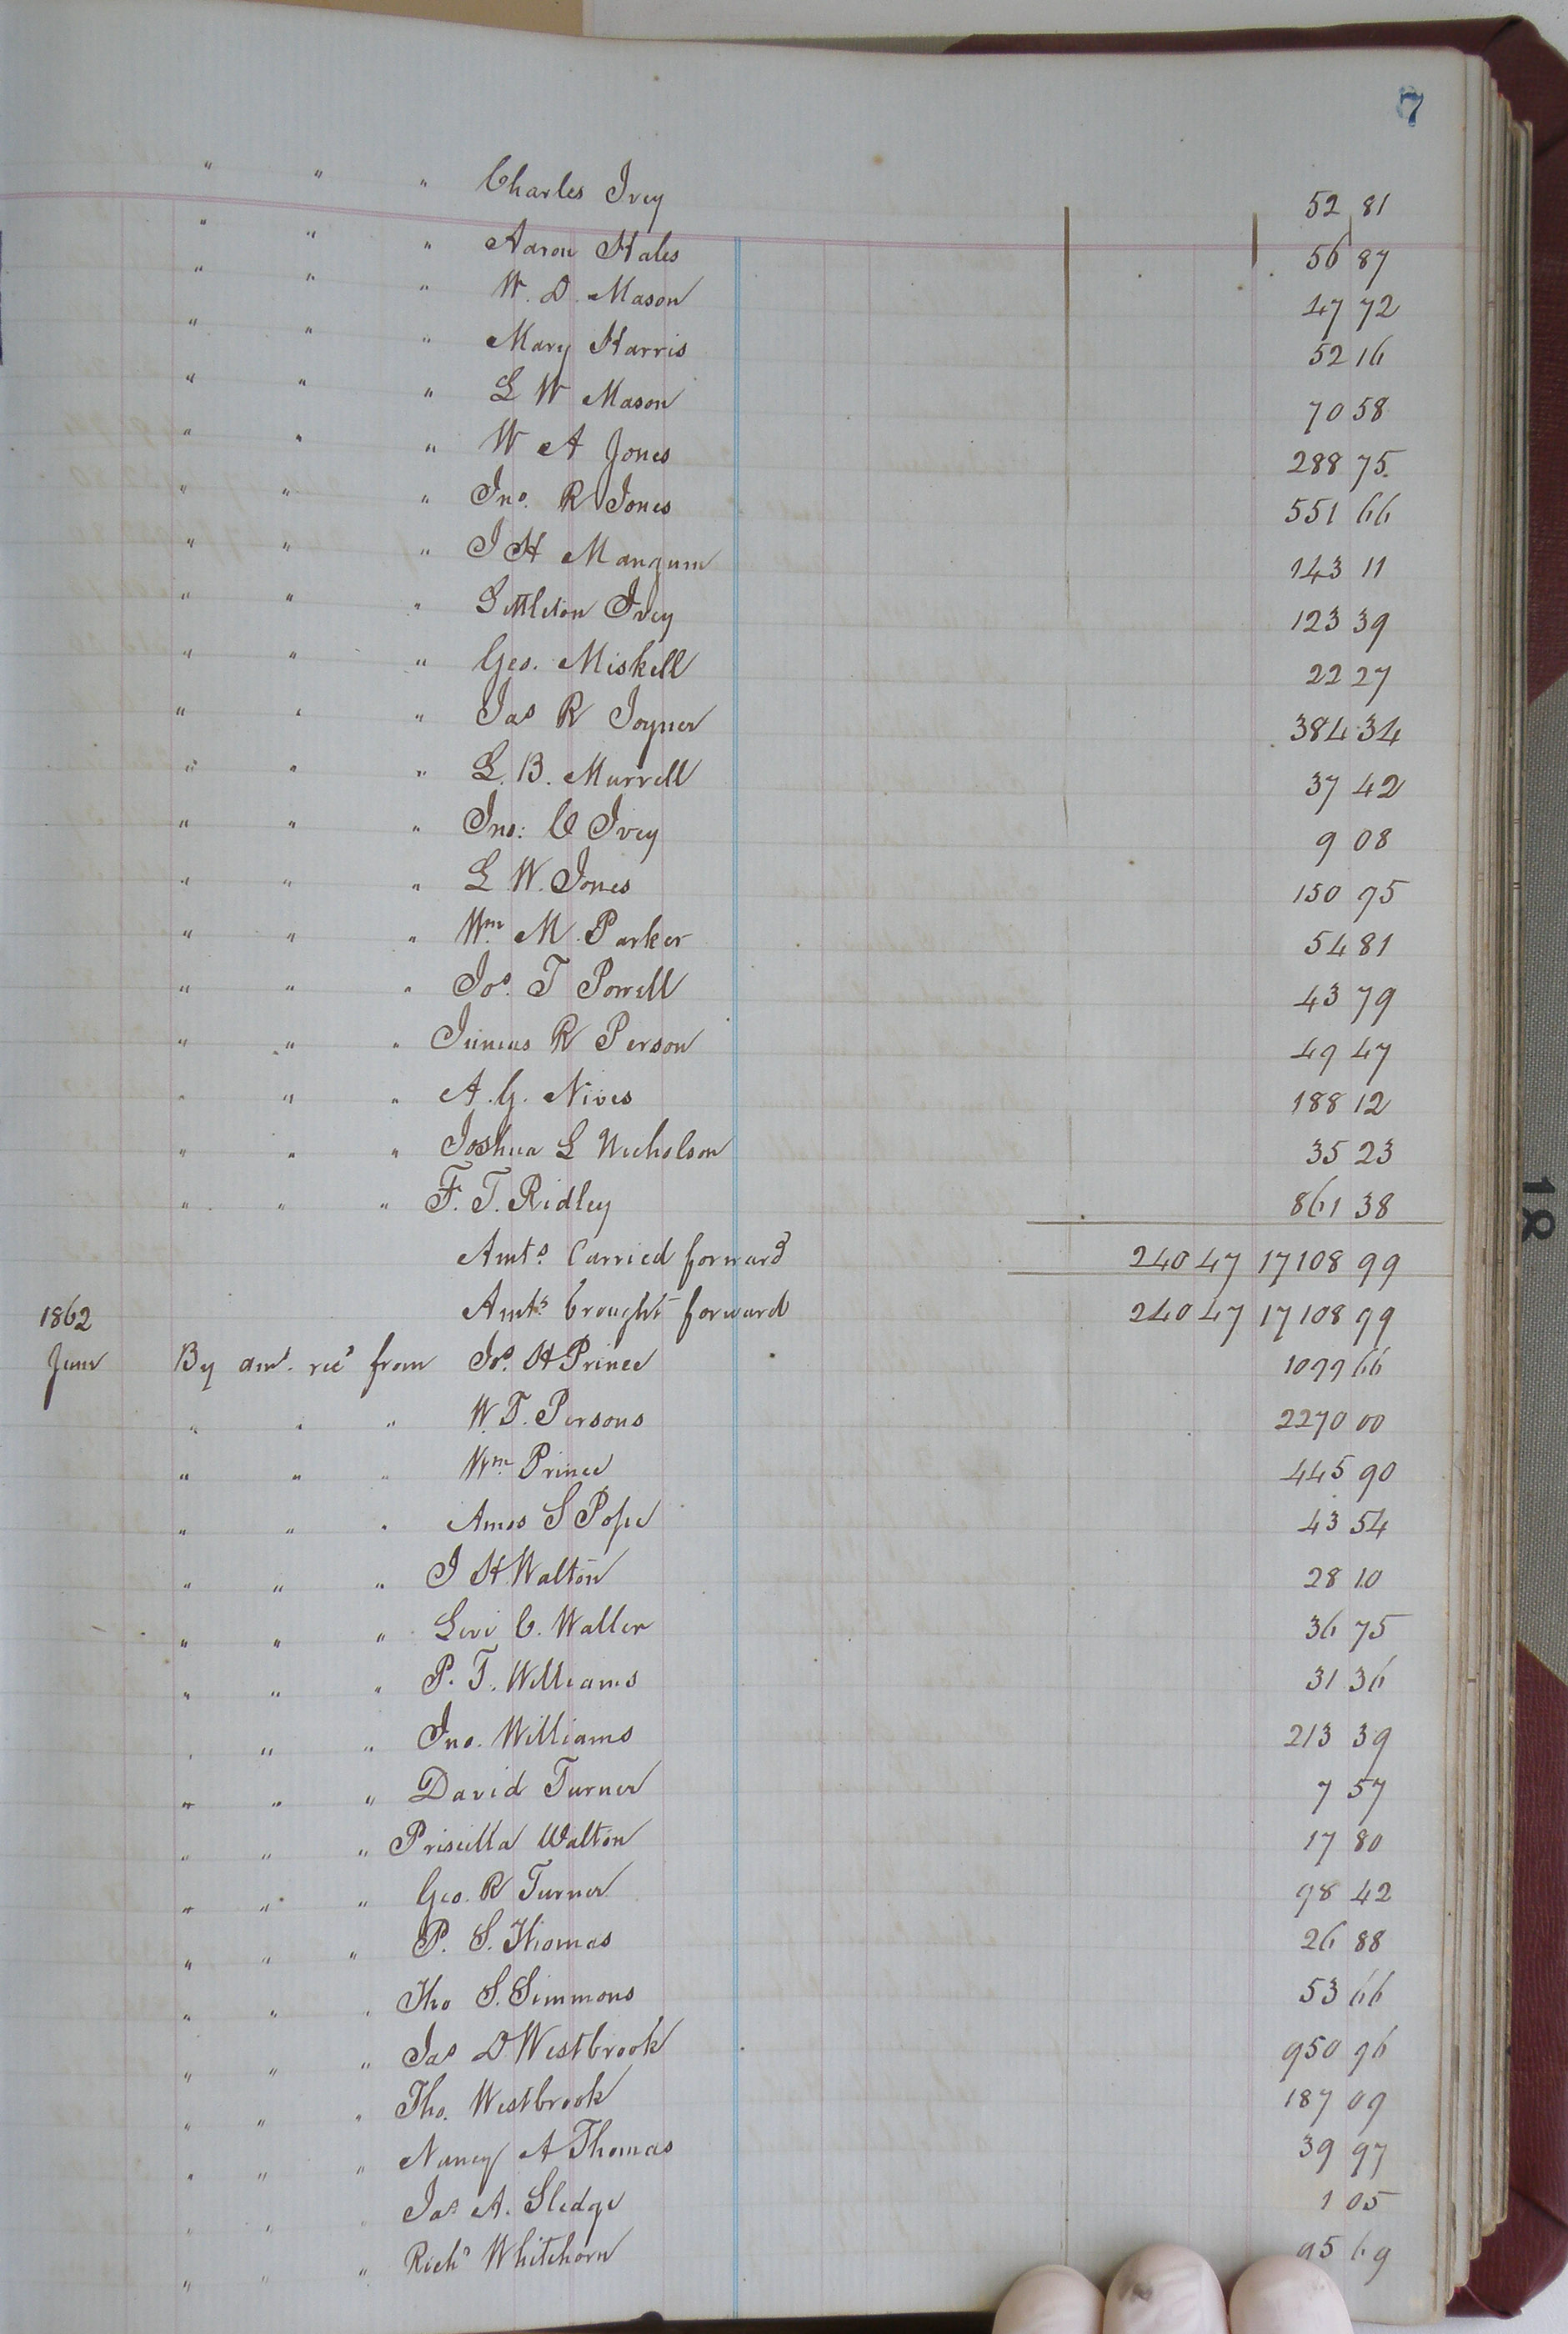 7
" " " Charles Ivey 52 81
" " " Aaron Hales 56 87
" " " W. D. Mason 47 72
" " " Mary Harris 52 16
" " " L W Mason 70 58
" " " W A Jones 288 75
" " " Jno. R Jones 551 66
" " " J H Mangum 143 11
" " " Littleton Ivey 123 39
" " " Geo. Miskell 22 27
" " " Jas R Joyner 384 34
" " " L. B. Murrell 37 42
" " " Jno: C Ivey 9 08
" " " L. W. Jones 150 95
" " " Wm. M. Parker 54 81
" " " Jos. T Powell 43 79
" " " Junius R Person 49 47
" " " A. G. Nives 188 12
" " " Joshua L Nicholson 35 23
" " " F. T. Ridley 861 38
Amts. Carried forward 240 47 17108 99
1862 Amts. brought forward 240 47 17108 99
June By amt. recd from Jos. H Prince 1099 66
" " " W. T. Persons 2270 00
" " " Wm. Prince 445 90
" " " Amos S Pope 43 54
" " " J H Walton 28 10
" " " Levi C. Waller 36 75
" " " P. T. Williams 31 36
" " " Jno. Williams 213 39
" " " David Turner 7 57
" " " Priscilla Walton 17 80
" " " Geo. R Turner 98 42
" " " P. S. Thomas 26 88
" " " Tho S. Simmons 53 66
" " " Jas D Westbrook 950 96
" " " Tho. Westbrook 187 09
" " " Nancy A Thomas 39 97
" " " Jas. A. Sledge 1 05
" " " Richd Whitehorn 95 69
18